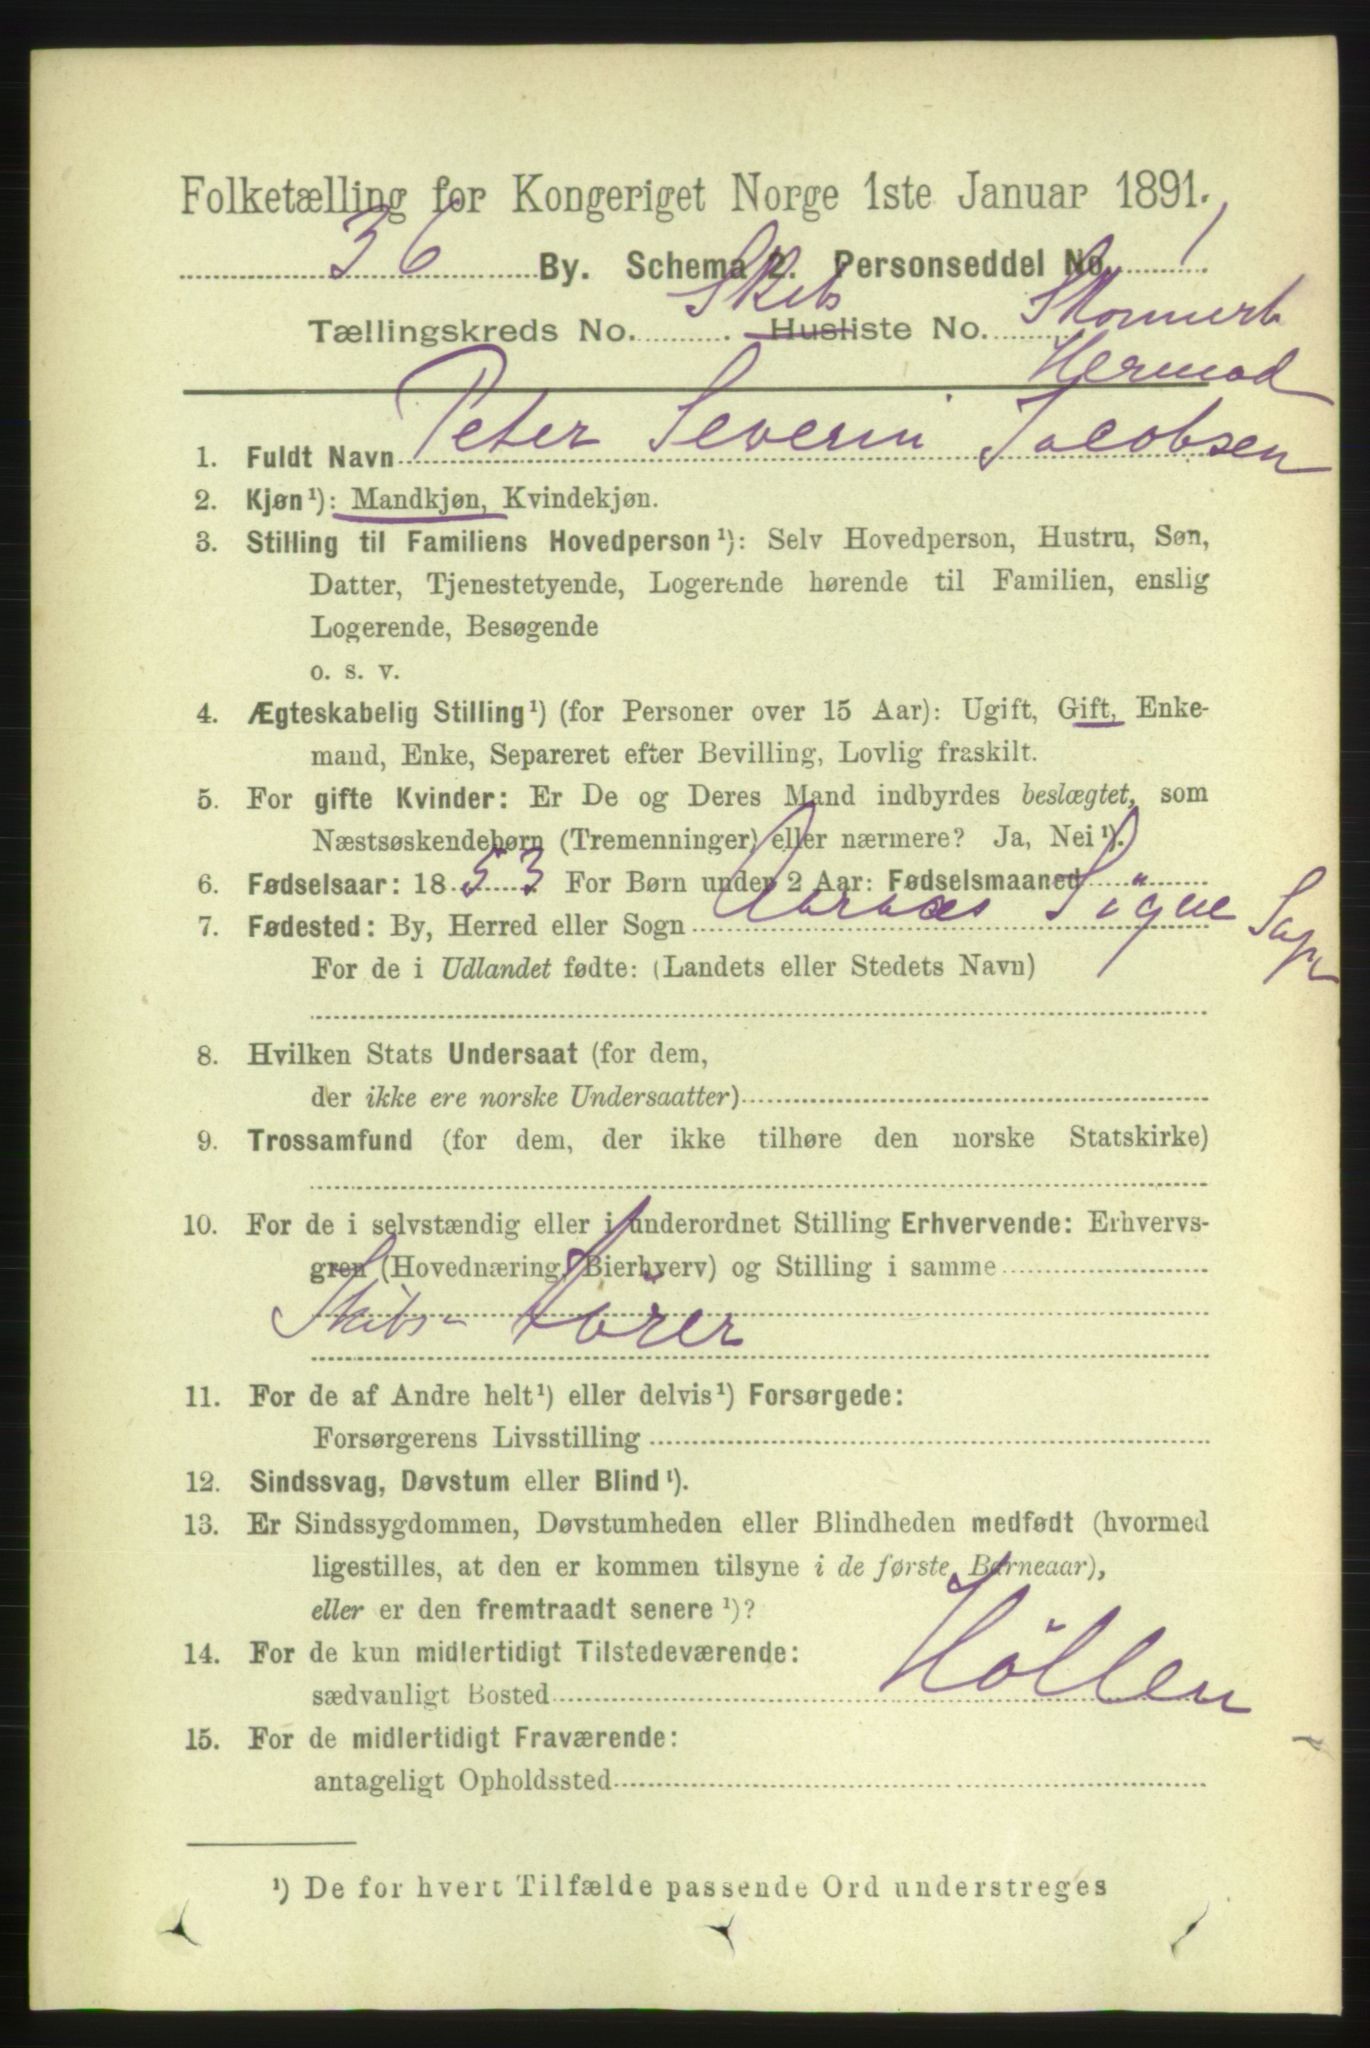 Folketælling for Kongeriget Norge 1ste Januar 1891.
36 By. Schema 2. Personseddel No. 1
Tællingskreds No. Skibs Husliste No. Skonnert
Hermod
1. Fuldt Navn Peter Severin Jacobsen
2. Kjøn¹): Mandkjøn, Kvindekjøn.
3. Stilling til Familiens Hovedperson¹): Selv Hovedperson, Hustru, Søn,
Datter, Tjenestetyende, Logerende hørende til Familien, enslig
Logerende, Besøgende
o. s. v.
4. Ægteskabelig Stilling¹) (for Personer over 15 Aar): Ugift, Gift, Enke-
mand, Enke, Separeret efter Bevilling, Lovlig fraskilt.
5. For gifte Kvinder: Er De og Deres Mand indbyrdes beslægtet, som
Næstsøskendebørn (Tremenninger) eller nærmere? Ja, Nei¹).
6. Fødselsaar: 1853 For Børn under 2 Aar: Fødselsmaaned
7. Fødested: By, Herred eller Sogn Søgne
For de i Udlandet fødte: (Landets eller Stedets Navn)
8. Hvilken Stats Undersaat (for dem,
der ikke ere norske Undersaatter)
9. Trossamfund (for dem, der ikke tilhøre den norske Statskirke)
10. For de i selvstændig eller i underordnet Stilling Erhvervende: Erhvervs-
gren (Hovednæring, Bierhverv) og Stilling i samme
Skibs- fører
11. For de af Andre helt¹) eller delvis¹) Forsørgede:
Forsørgerens Livsstilling
12. Sindssvag, Døvstum eller Blind¹).
13. Er Sindssygdommen, Døvstumheden eller Blindheden medfødt (hvormed
ligestilles, at den er kommen tilsyne i de første Barneaar),
eller er den fremtraadt senere¹)?
14. For de kun midlertidigt Tilstedeværende:
sædvanligt Bosted Høllen
15. For de midlertidigt Fraværende:
antageligt Opholdssted
¹) De for hvert Tilfælde passende Ord understreges